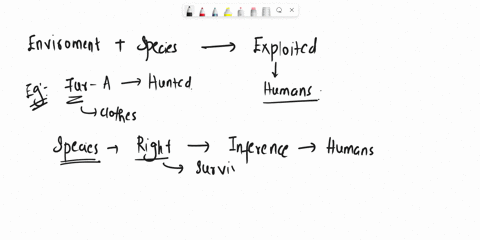 Enviroment + Species → Exploited
↓
Eg:- Fur-A → Hunted Humans
↳ clothes
Species → Right → Inference → Humans
↳ Survi